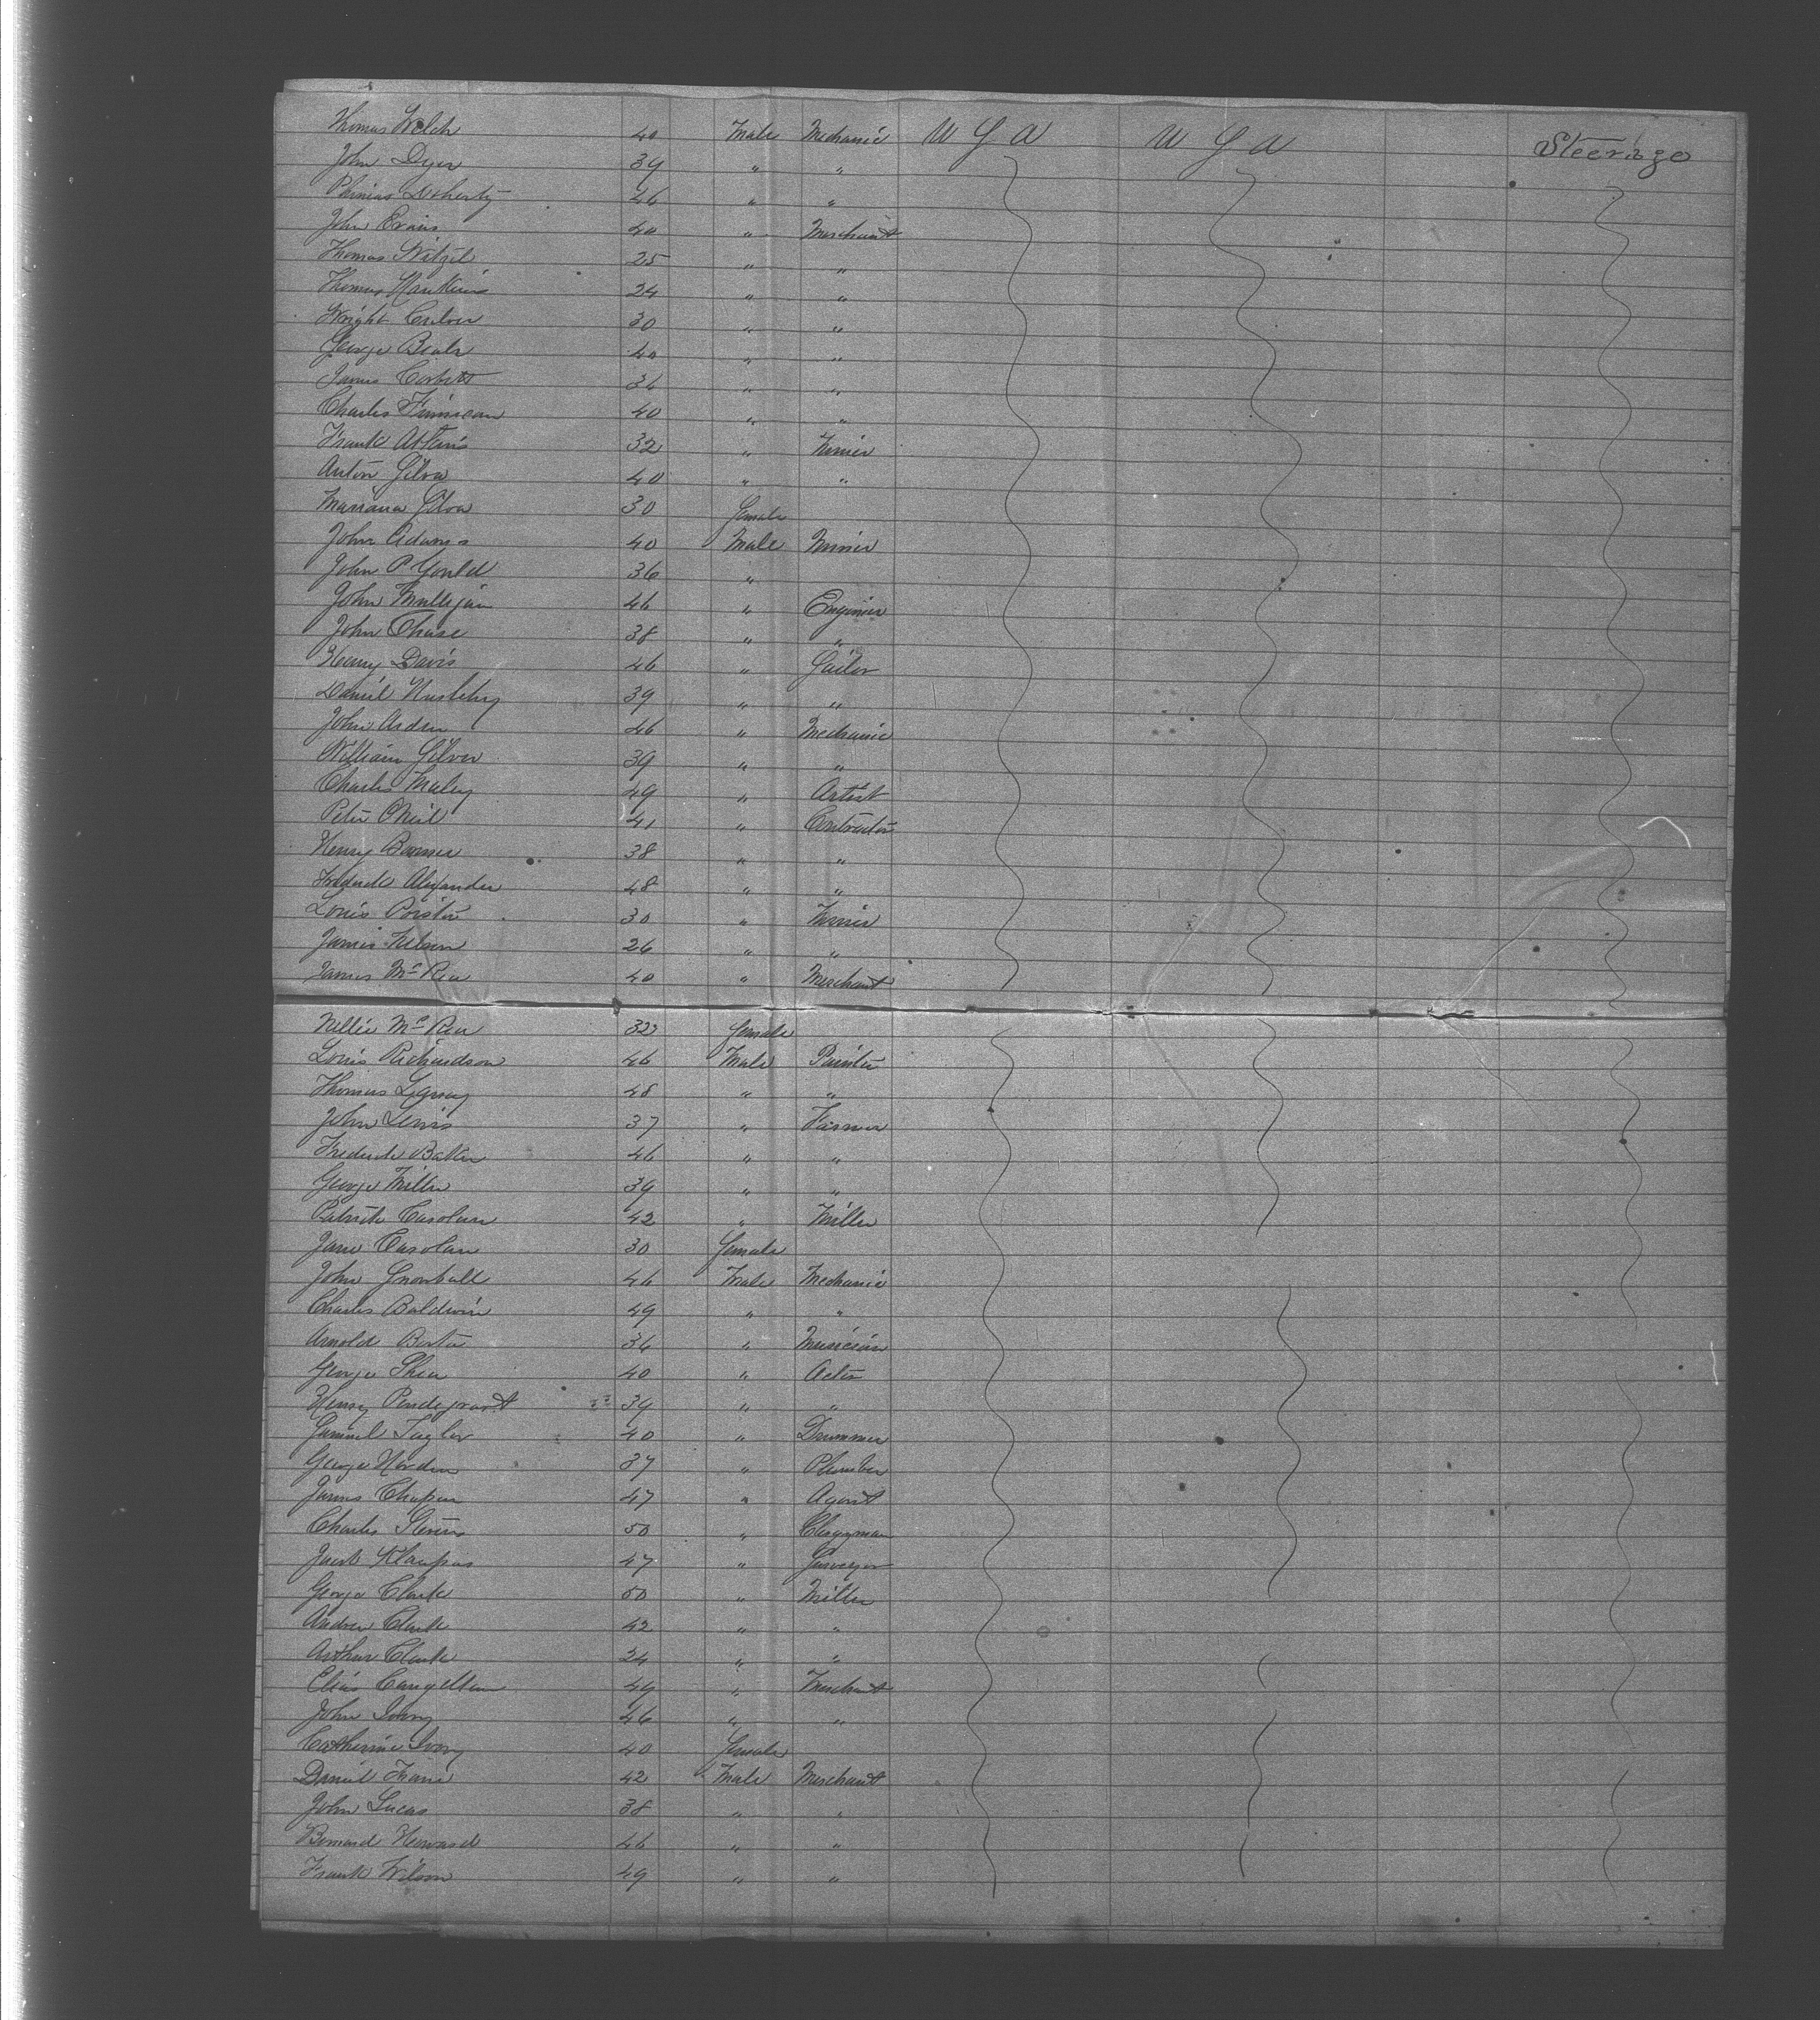 Thomas Welch 40 Male Mechanic U S A U S A Steerage
John Dyer 39 " "
Phinias Doherty 46 " "
John Evans 40 " Merchant
Thomas Witzel 25 " "
Thomas Hawkins 24 " "
Wright Culver 30 " "
George Beals 40 " "
James Corbett 36 " "
Charles Finnican 40 " "
Frank Atkins 32 " Miner
Anton Silva 40 " "
Mariana Silva 30 Female
John Adams 40 Male Miner
John P Gould 36 "
John Mulligan 46 " Engineer
John Chase 38 " "
Henry Davis 46 " Sailor
Daniel 39 " "
John Arden 46 " Mechanic
William Silver 39 " "
Charles Maley 49 " Artist
Peter ONeil 41 " Contractor
Henry Banner 38 " "
Frederick Alexander 48 " "
Louis Porster 30 " Miner
James Nelson 26 " "
James McRea 40 " Merchant
Nellie McRea 32 Female
Louis Richardson 46 Male Painter
Thomas 48 " "
John Lewis 37 " Farmer
Frederick Baker 46 " "
George Miller 39 " "
Patrick Casolan 42 " Miller
Jane Casolan 30 Female
John Snowball 46 Male Mechanic
Charles Baldwin 49 " "
Arnold Berter 36 " Musician
George Shea 40 " Actor
Henry Pendegrast 39 " "
Samuel Taylor 40 " Drummer
George Norden 37 " Plumber
James Chapin 47 " Agent
Charles Stevens 50 " Clergyman
Jacob 47 " Surveyor
George Clark 50 " Miller
Andrew Clark 42 " "
Arthur Clark 24 " "
Elias 49 " Merchant
John Ivory 46 " "
Catherine Ivory 40 Female
Daniel 42 Male Merchant
John Lucas 38 " "
Bernard Howard 46 " "
Frank Wilson 49 " "